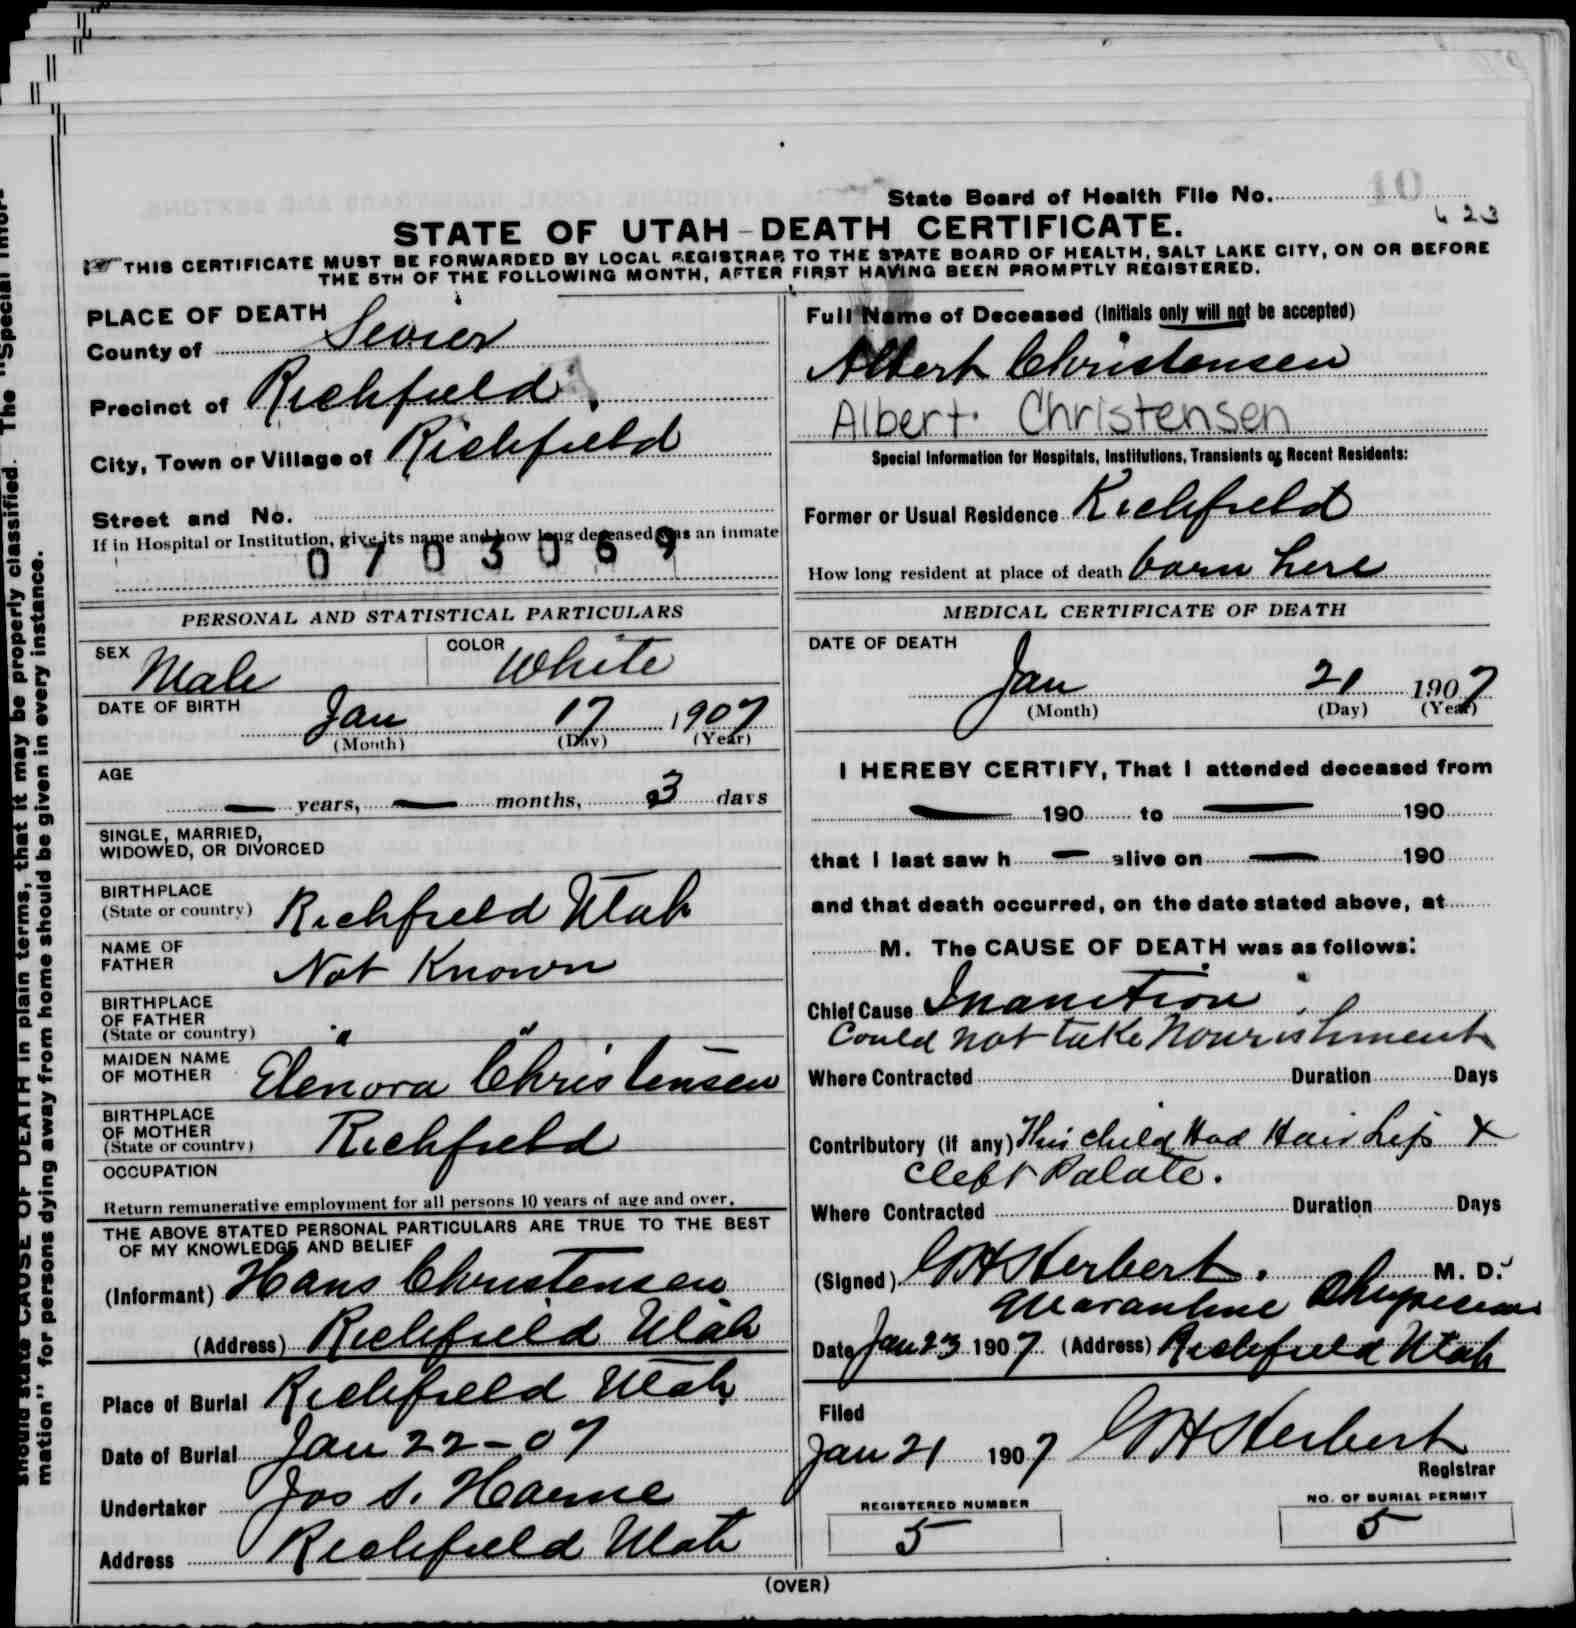 State Board of Health File No. 10
623
STATE OF UTAH-DEATH CERTIFICATE.
THIS CERTIFICATE MUST BE FORWARDED BY LOCAL REGISTRAR TO THE STATE BOARD OF HEALTH, SALT LAKE CITY, ON OR BEFORE
THE 5TH OF THE FOLLOWING MONTH, AFTER FIRST HAVING BEEN PROMPTLY REGISTERED.
PLACE OF DEATH
County of Sevier
Precinct of Richfield
City, Town or Village of Richfield
Street and No.
If in Hospital or Institution, give its name and how long deceased was an inmate
0703069
Full Name of Deceased (Initials only will not be accepted)
Albert Christensen
Albert Christensen
Special Information for Hospitals, Institutions, Transients or Recent Residents:
Former or Usual Residence Richfield
How long resident at place of death born here
PERSONAL AND STATISTICAL PARTICULARS
SEX Male COLOR White
DATE OF BIRTH
Jan 17 1907
(Month) (Day) (Year)
AGE
— years, — months, 3 days
SINGLE, MARRIED,
WIDOWED, OR DIVORCED
BIRTHPLACE
(State or country) Richfield Utah
NAME OF
FATHER Not Known
BIRTHPLACE
OF FATHER
(State or country) " "
MAIDEN NAME
OF MOTHER Elenora Christensen
BIRTHPLACE
OF MOTHER
(State or country) Richfield
OCCUPATION
Return remunerative employment for all persons 10 years of age and over.
THE ABOVE STATED PERSONAL PARTICULARS ARE TRUE TO THE BEST
OF MY KNOWLEDGE AND BELIEF
(Informant) Hans Christensen
(Address) Richfield Utah
Place of Burial Richfield Utah
Date of Burial Jan 22-07
Undertaker Jos S. Horne
Address Richfield Utah
MEDICAL CERTIFICATE OF DEATH
DATE OF DEATH
Jan 21 1907
(Month) (Day) (Year)
I HEREBY CERTIFY, That I attended deceased from
— 190 to — 190
that I last saw h — alive on — 190
and that death occurred, on the date stated above, at
M. The CAUSE OF DEATH was as follows:
Chief Cause Inanition
Could not take Nourishment
Where Contracted Duration Days
Contributory (if any) This child Had Hair Lip &
Cleft Palate.
Where Contracted Duration Days
(Signed) GH Herbert. M. D.
Quarantine Physician
Date Jan 23 1907 (Address) Richfield Utah
Filed
Jan 21 1907 GH Herbert
Registrar
REGISTERED NUMBER
5
NO. OF BURIAL PERMIT
5
(OVER)
should state CAUSE OF DEATH in plain terms, that it may be properly classified. The "Special Infor-
mation" for persons dying away from home should be given in every instance.